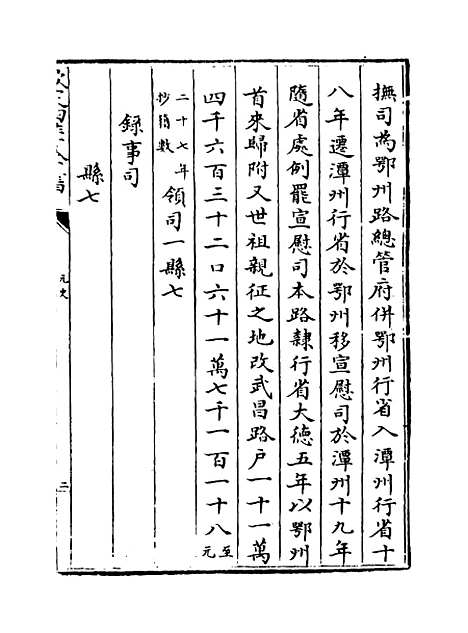 撫司為鄂州路總管府併鄂州行省入潭州行省十
八年遷潭州行省於鄂州移宣慰司於潭州十九年
隨省處例罷宣慰司本路隷行省大德五年以鄂州
首來歸附又世祖親征之地改武昌路户一十一萬
四千六百三十二口六十一萬七千一百一十八至元
二十七年抄籍數領司一縣七
錄事司
縣七
元史
二